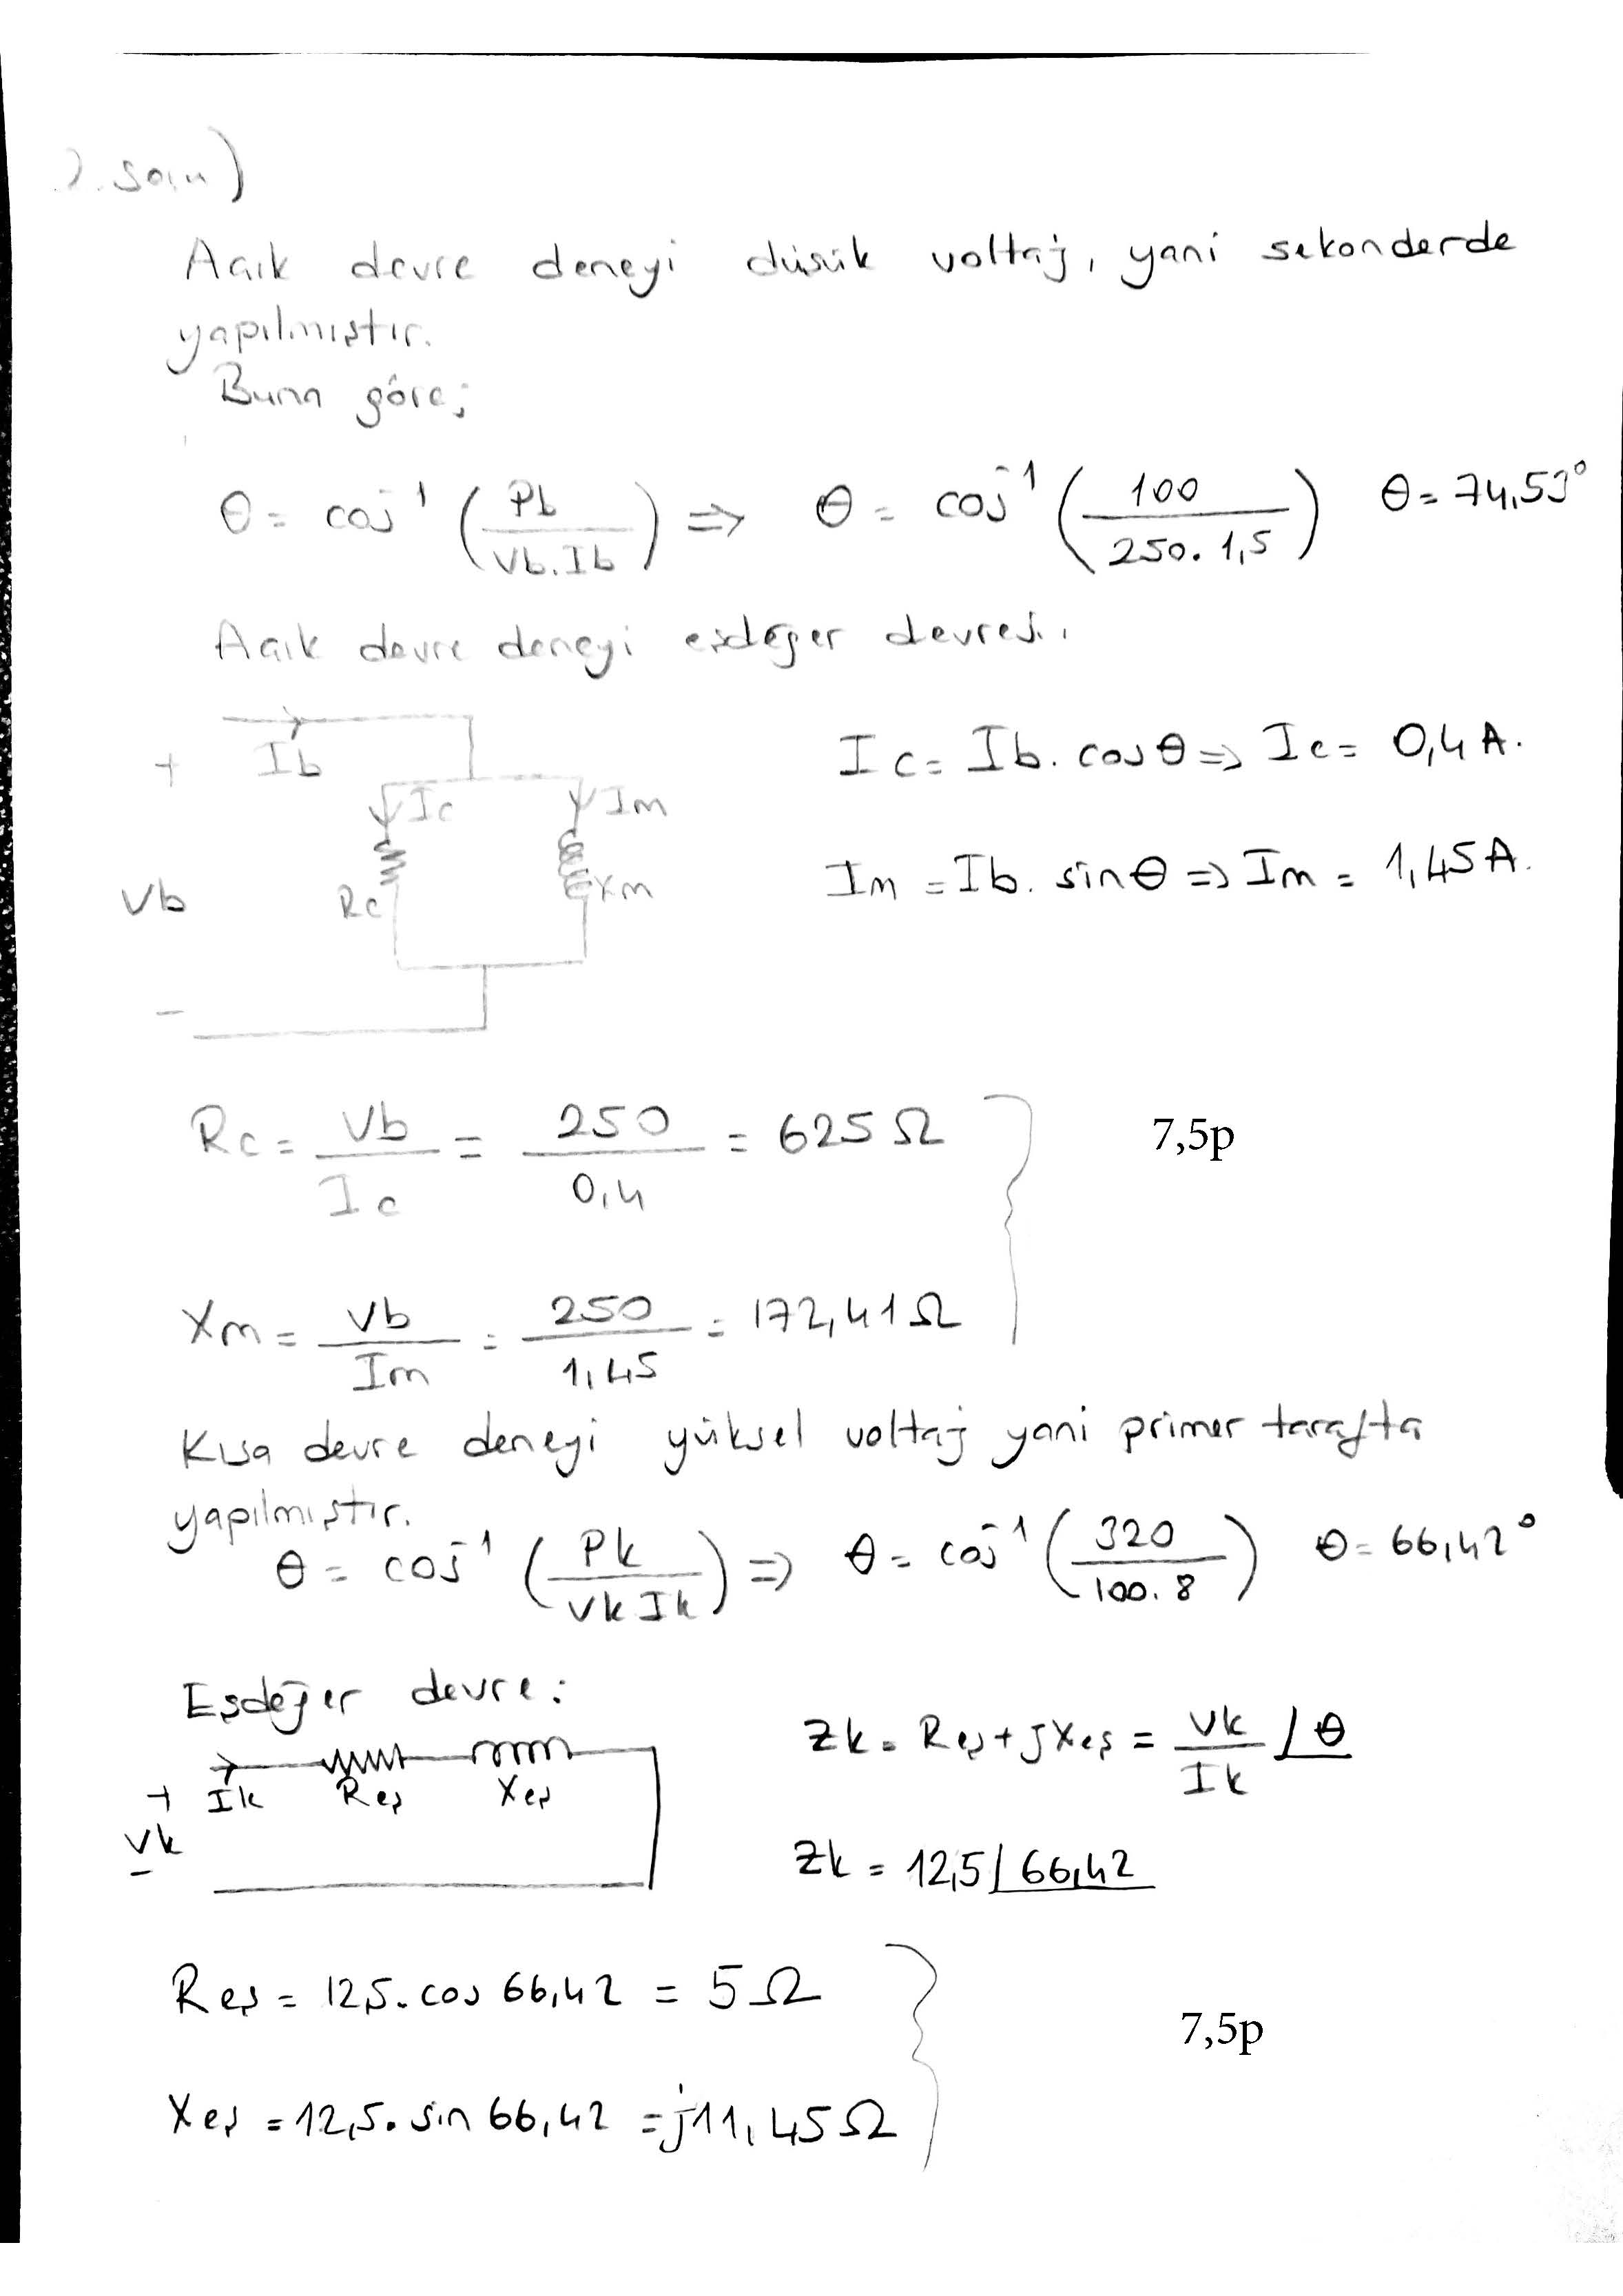 2. soru)
Açık devre deneyi düşük voltaj, yani sekonderde
yapılmıştır.
Buna göre;
θ = cos⁻¹ (Pb / Vb.Ib) => θ = cos⁻¹ (100 / 250.1,5) θ = 74,53°
Açık devre deneyi eşdeğer devresi.
+ Ib
Ic Im
Vb Rc Xm
-
Ic = Ib. cosθ => Ic = 0,4 A.
Im = Ib. sinθ => Im = 1,45A.
Rc = Vb / Ic = 250 / 0,4 = 625 Ω
7,5p
Xm = Vb / Im = 250 / 1,45 = 172,41 Ω
Kısa devre deneyi yüksel voltaj yani primer tarafta
yapılmıştır.
θ = cos⁻¹ (Pk / Vk Ik) => θ = cos⁻¹ (320 / 100.8) θ = 66,42°
Eşdeğer devre:
+ Ik Reş Xeş
Vk
-
Zk = Reş + jXeş = Vk / Ik ∠θ
Zk = 12,5 ∠66,42
Reş = 12,5. cos 66,42 = 5 Ω
7,5p
Xeş = 12,5. sin 66,42 = j11,45 Ω